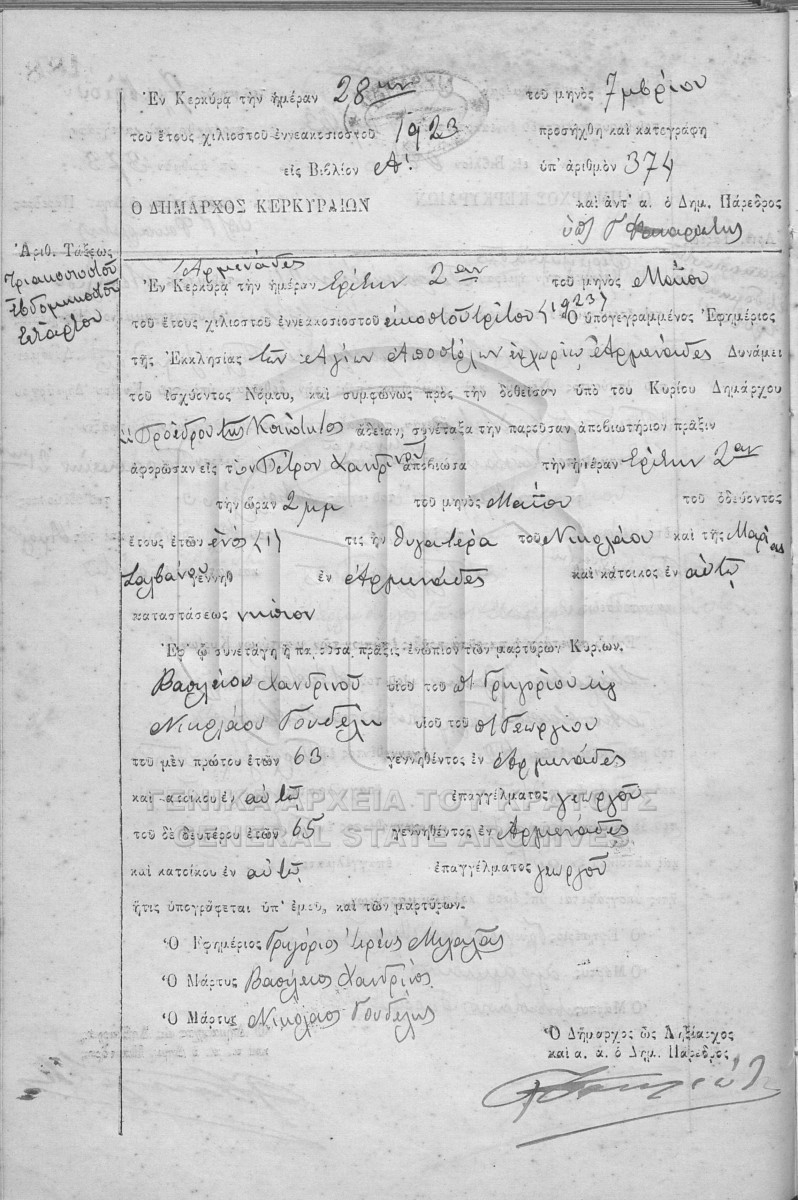 Ἐν Κερκύρᾳ τὴν ἡμέραν 28ην τοῦ μηνὸς 7μβρίου
τοῦ ἔτους χιλιοστοῦ ἐννεακοσιοστοῦ 1923 προσήχθη καὶ κατεγράφη
εἰς Βιβλίον Α΄. ὑπ' ἀριθμὸν 374
Ο ΔΗΜΑΡΧΟΣ ΚΕΡΚΥΡΑΙΩΝ καὶ ἀντ' α. ὁ Δημ. Πάρεδρος
Ἀριθ. Τάξεως
Τριακοσιοστοῦ
Ἑβδομηκοστοῦ
τετάρτου
Ἀρμενάδες
Ἐν Κερκύρᾳ τὴν ἡμέραν Τρίτην 2αν τοῦ μηνὸς Μαΐου
τοῦ ἔτους χιλιοστοῦ ἐννεακοσιοστοῦ εἰκοστοῦ τρίτου (1923) Ὁ ὑπογεγραμμένος Ἐφημέριος
τῆς Ἐκκλησίας τῶν Ἁγίων Ἀποστόλων ἐκ χωρίου Ἀρμενάδες Δυνάμει
τοῦ Ἰσχύοντος Νόμου, καὶ συμφώνως πρὸς τὴν δοθεῖσαν ὑπὸ τοῦ Κυρίου Δημάρχου
Προέδρου τῆς Κοινότητος ἄδειαν, συνέταξα τὴν παροῦσαν ἀποβιωτήριον πρᾶξιν
ἀφορῶσαν εἰς τὸν Πέτρον Χανδρινοῦ ἀποβιώσα τὴν ἡμέραν Τρίτην 2αν
τὴν ὥραν 2 μμ τοῦ μηνὸς Μαΐου τοῦ ὁδεύοντος
ἔτους ἐτῶν ἑνός (1) τις ἦν θυγατέρα τοῦ Νικολάου καὶ τῆς Μαρίας
Σαλβάνου γεννηθ ἐν Ἀρμενάδες καὶ κάτοικος ἐν αὐτῷ
καταστάσεως νήπιον
Ἐφ' ᾧ συνετάγη ἡ παροῦσα πρᾶξις ἐνώπιον τῶν μαρτύρων Κυρίων.
Βασιλείου Χανδρινοῦ υἱοῦ τοῦ π Γρηγορίου
Νικολάου Γουδέλη υἱοῦ τοῦ π Γεωργίου
τοῦ μὲν πρώτου ἐτῶν 63 γεννηθέντος ἐν Ἀρμενάδες
καὶ κατοίκου ἐν αὐτῷ ἐπαγγέλματος γεωργοῦ
τοῦ δὲ δευτέρου ἐτῶν 65 γεννηθέντος ἐν Ἀρμενάδες
καὶ κατοίκου ἐν αὐτῷ ἐπαγγέλματος γεωργοῦ
ἥτις ὑπογράφεται ὑπ' ἐμοῦ, καὶ τῶν μαρτύρων.
Ὁ Ἐφημέριος Γρηγόριος Ἱερεὺς
Ὁ Μάρτυς Βασίλειος Χανδρινὸς
Ὁ Μάρτυς Νικόλαος Γουδέλης
Ὁ Δήμαρχος ὡς Ληξίαρχος
καὶ α. α. ὁ Δημ. Πάρεδρος
ΓΕΝΙΚΑ ΑΡΧΕΙΑ ΤΟΥ ΚΡΑΤΟΥΣ
GENERAL STATE ARCHIVES